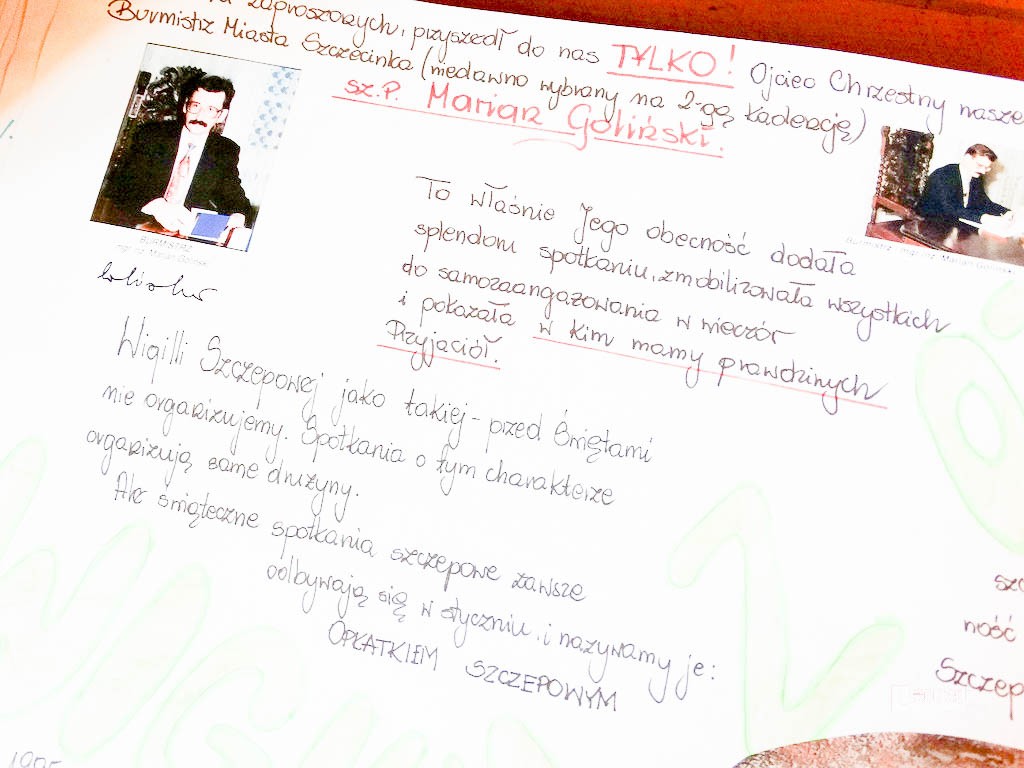 zaproszonych, przyszedł do nas TYLKO! Ojciec Chrzestny nasze
Burmistrz Miasta Szczecinka (niedawno wybrany na 2-gą kadencję)
sz.P. Marian Goliński.
BURMISTRZ
mgr inż. Marian Goliński
Burmistrz mgr inż. Marian Goliński
To właśnie Jego obecność dodała
splendoru spotkaniu, zmobilizowała wszystkich
do samozaangażowania w wieczór
i pokazała w kim mamy prawdziwych
Przyjaciół.
Wigilli Szczepowej jako takiej - przed Świętami
nie organizujemy. Spotkania o tym charakterze
organizują same drużyny.
Ale świąteczne spotkania szczepowe zawsze
odbywają się w styczniu, i nazywamy je:
OPŁATKIEM SZCZEPOWYM
szc
ność
Szczep